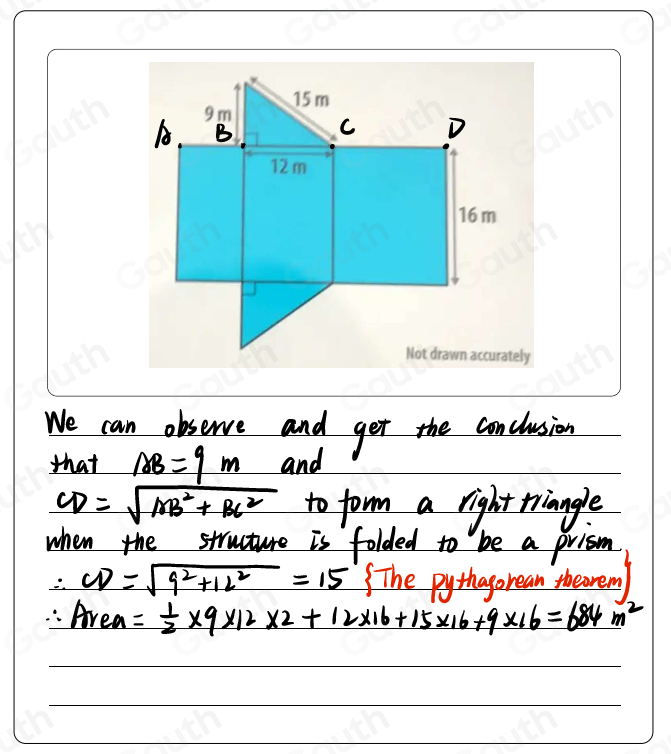 15 m
9 m
A B C D
12 m
16 m
Not drawn accurately
We can observe and get the conclusion
that AB = 9 m and
CD = √(AB² + BC²) to form a right triangle
when the structure is folded to be a prism.
∴ CD = √(9² + 12²) = 15 {The pythagorean theorem}
∴ Area = 1/2 × 9 × 12 × 2 + 12×16 + 15×16 + 9×16 = 684 m²
Gauth